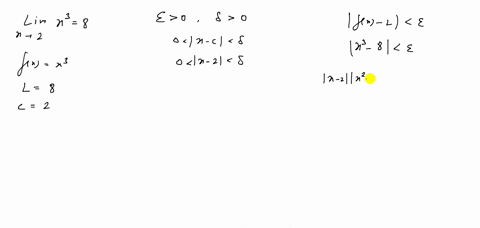 Lim x³ = 8
x→2
f(x) = x³
L = 8
c = 2
ε > 0 , δ > 0
0 < |x - c| < δ
0 < |x - 2| < δ
|f(x) - L| < ε
|x³ - 8| < ε
|x-2||x²